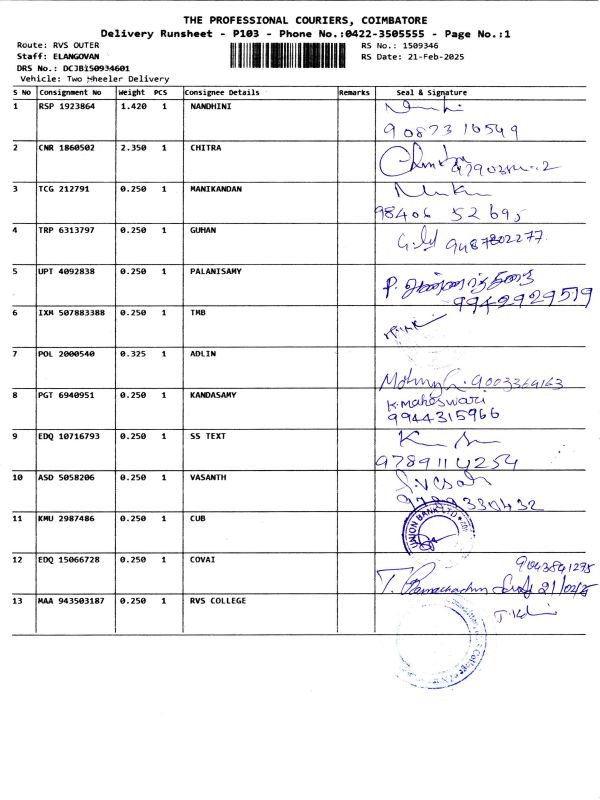 THE PROFESSIONAL COURIERS, COIMBATORE
Delivery Runsheet - P103 - Phone No.:0422-3505555 - Page No.:1
Route: RVS OUTER RS No.: 1509346
Staff: ELANGOVAN RS Date: 21-Feb-2025
DRS No.: DCJB150934601
Vehicle: Two Wheeler Delivery
S No Consignment No Weight PCS Consignee Details Remarks Seal & Signature
1 RSP 1923864 1.420 1 NANDHINI
9087316549
2 CNR 1860502 2.350 1 CHITRA
3 TCG 212791 0.250 1 MANIKANDAN
98406 52695
4 TRP 6313797 0.250 1 GUHAN
9487802277
5 UPT 4092838 0.250 1 PALANISAMY
P.
9942929519
6 IXM 507883388 0.250 1 TMB
7 POL 2000540 0.325 1 ADLIN
9003369163
8 PGT 6940951 0.250 1 KANDASAMY
K.Maheswari
9944315966
9 EDQ 10716793 0.250 1 SS TEXT
9789114254
10 ASD 5058206 0.250 1 VASANTH
9789330432
11 KMU 2987486 0.250 1 CUB
UNION BANK LTD
12 EDQ 15066728 0.250 1 COVAI
9043841295
T. Ramachandran 21/02/25
13 MAA 943503187 0.250 1 RVS COLLEGE